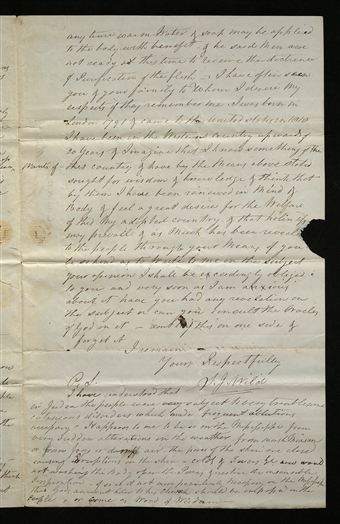 any time warm Water & soap may be applied
to the body with benefit. & he said Men are
not ready at this time to receive the doctrine
of Purification of the flesh - I have often seen
you & your family to whom I desire My
respects if they remember me. I was born in
London 1791 & came to the United States in 1810
I have been in the Western Country upwards of
20 years & I imagine that I know something of the
Wants of this country & have by the Means above stated
sought for wisdom & knowledge & think that
by them I have been renewed in Mind &
Body & feel a great desire for the Welfare
of this My adopted country & that
may prevail & as Much has been revealed
to the people through your Means, if you
be so kind as to Write to me on the subject
your opinion I shall be exceedingly obliged
to you and very soon as I am anxious
about it have you had any revelation on
the subject or can you consult the Oracles
of God on it - dont lay this on one side &
forget it
I remain
Yours Respectfully
P.S. I have understood that
in Judea the people were very subject to
disorders which made frequent ablutions
necessary. It happens to me to be so on the Mississippi from
very sudden alterations in the weather from
or from fogs or damp air the pores of the skin are closed
causing eruptions on the skin & colds & fevers &c now would
not washing the Body open the Pores & quicken the insensible
Perspiration
people